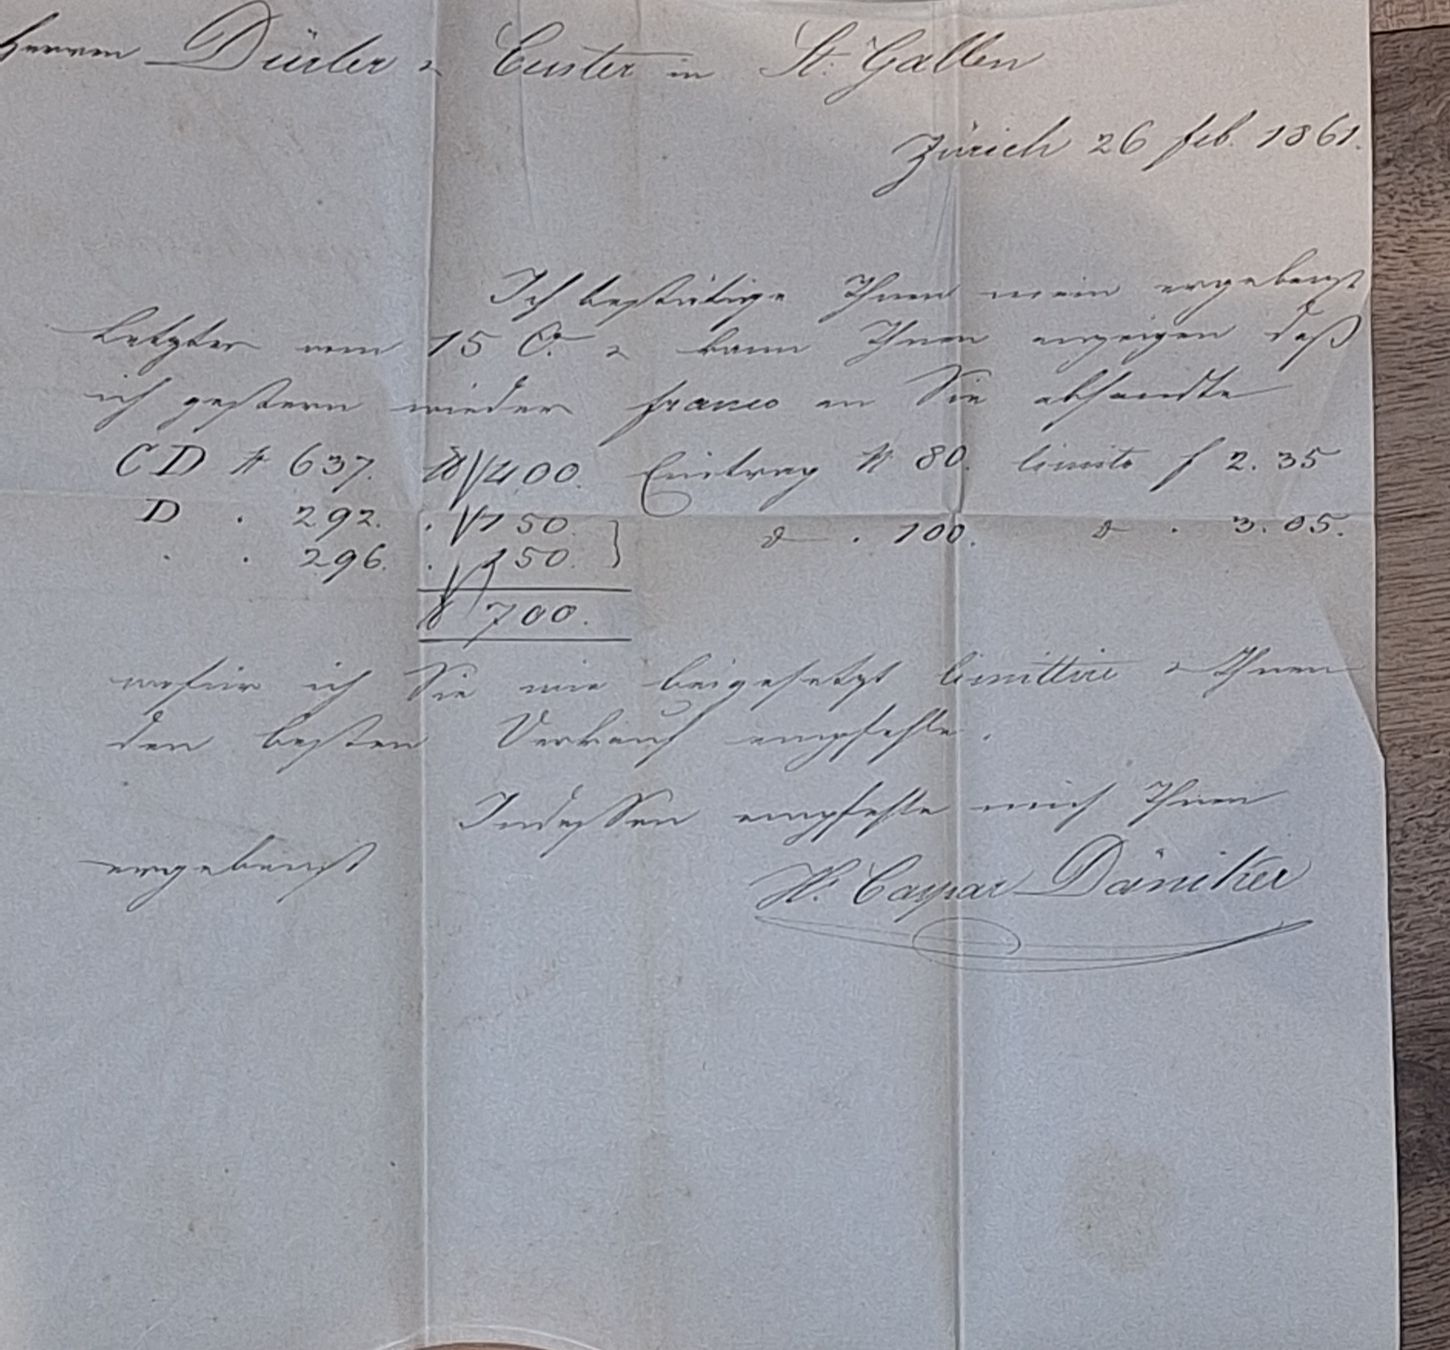 Herren Dürler & Custer in St. Gallen
Zürich 26 feb. 1861.
Ich bestätige Ihnen mein ergebenst
Letztes vom 15 C. & kann Ihnen anzeigen daß
ich gestern wieder franco an Sie absandte
CD № 637. ℔ 400. Eintrag № 80. limito f 2.35
D . 292. . 150. } d° . 100. d° . 3.05.
. . 296. . 150.
℔ 700.
wofür ich Sie wie beigesetzt limittire & Ihnen
den besten Verkauf empfehle.
Indessen empfehle mich Ihnen
ergebenst
Hs. Caspar Däniker